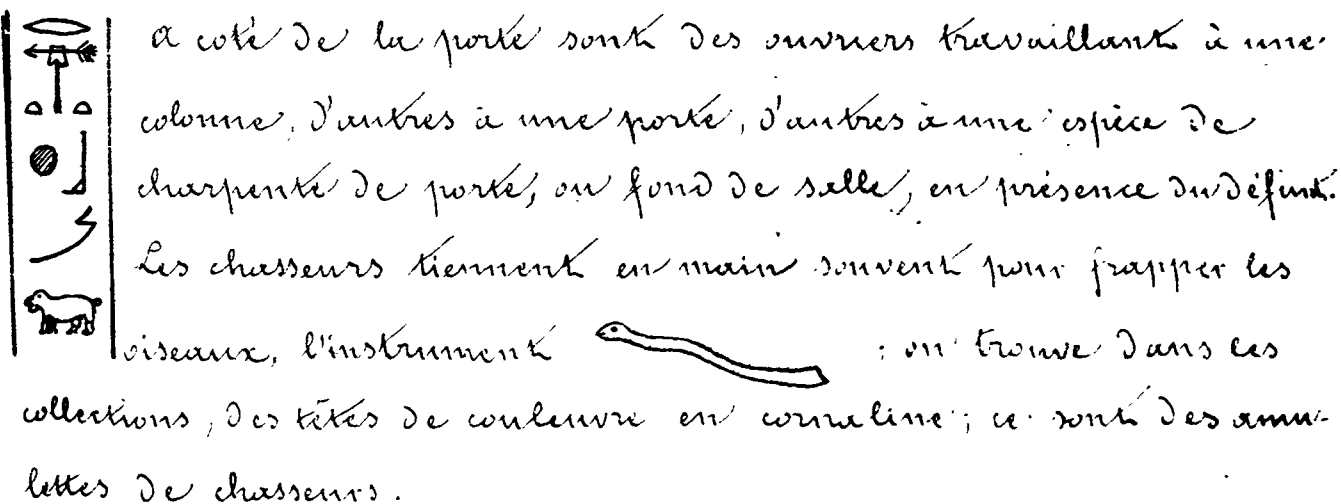 a coté de la porte sont des ouvriers travaillant à une
colonne, d'autres à une porte, d'autres à une espèce de
charpente de porte, ou fond de salle, en présence du défunt.
Les chasseurs tiennent en main souvent pour frapper les
oiseaux, l'instrument : on trouve dans les
collections, des têtes de couleuvre en cornaline; ce sont des amu-
lettes de chasseurs.